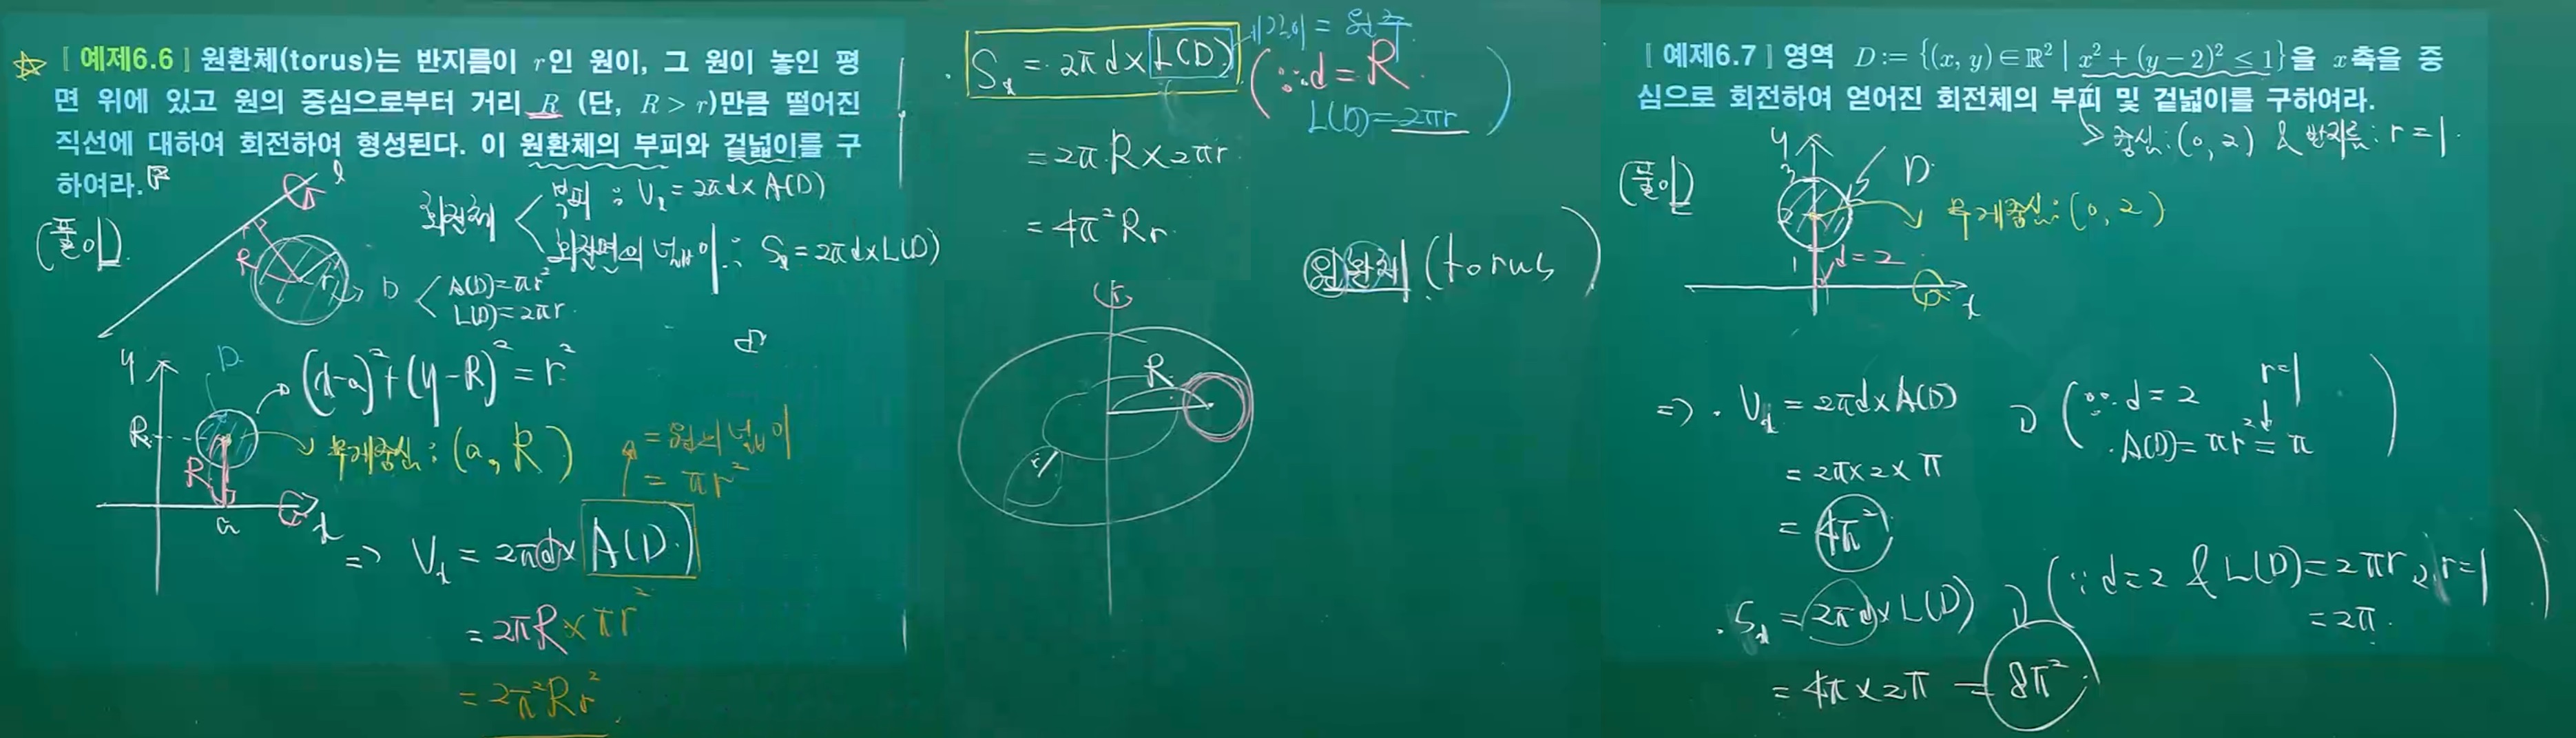 [예제6.6] 원환체(torus)는 반지름이 r인 원이, 그 원이 놓인 평
면 위에 있고 원의 중심으로부터 거리 R (단, R > r)만큼 떨어진
직선에 대하여 회전하여 형성된다. 이 원환체의 부피와 겉넓이를 구
하여라.
(풀이)
l
R
r
D
A(D)=πr²
L(D)=2πr
회전체
부피 : Vx = 2πd×A(D)
회전면의 넓이 : Sx = 2πd×L(D)
y
D
(x-a)²+(y-R)² = r²
R
R
a
x
무게중심 : (a, R)
= 원의 넓이
= πr²
=> Vx = 2πd× A(D)
= 2πR×πr²
= 2π²Rr²
Sx = 2πd× L(D)
= 원주
(∵ d = R
L(D)=2πr)
= 2π·R×2πr
= 4π²Rr
원환체 (torus)
R
r
[예제6.7] 영역 D := {(x, y)∈ℝ² | x² + (y − 2)² ≤ 1}을 x축을 중
심으로 회전하여 얻어진 회전체의 부피 및 겉넓이를 구하여라.
중심:(0, 2) & 반지름: r = 1.
(풀이)
y
3
2
1
D
무게중심:(0, 2)
d=2
x
=> · Vx = 2πd×A(D)
(∵ d = 2
r=1
A(D)= πr² = π)
= 2π×2×π
= 4π²
· Sx = 2πd×L(D)
(∵ d=2 & L(D)=2πr, r=1
= 2π.)
= 4π×2π = 8π²